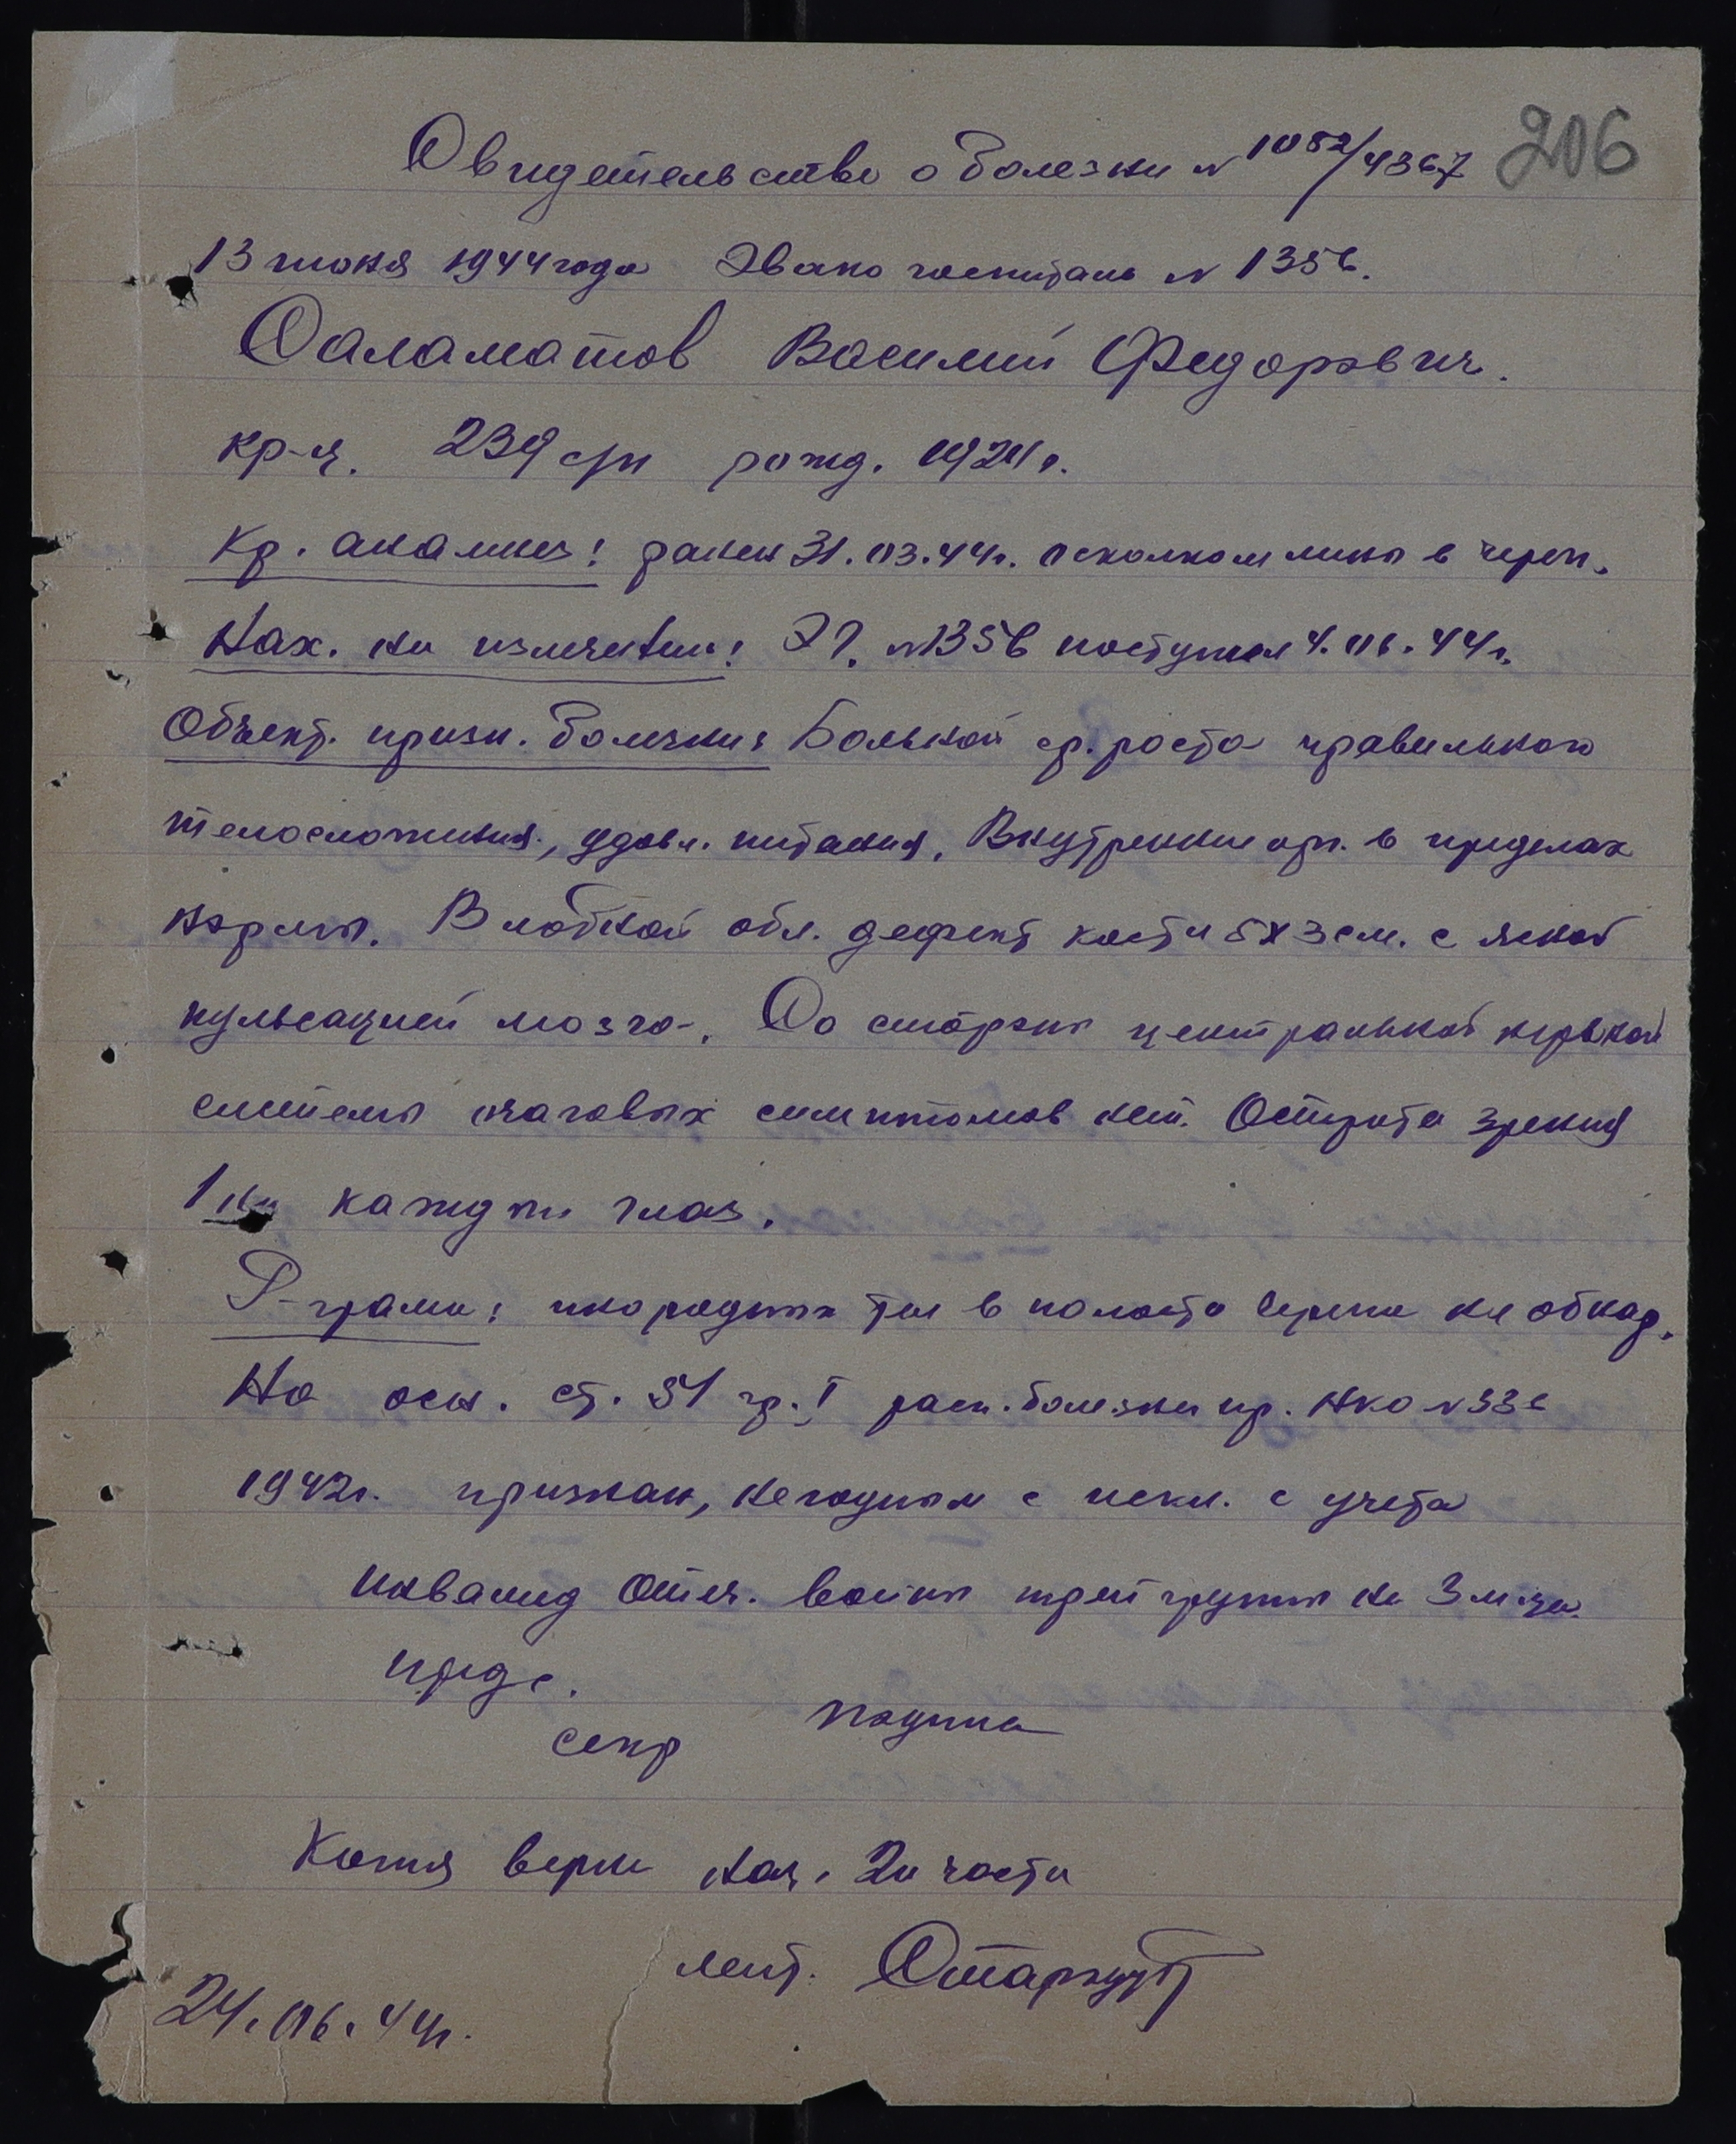 206
Свидетельство о болезни N 1082/4367
13 июня 1944 года Эвако госпиталь N 1356.
Саламатов Василий Федорович.
кр-ц. 239 с/п рожд. 1924 г.
Кр. анамнез: ранен 31.03.44г. осколком мины в череп.
Нах. на излечении: ЭГ. N1356 поступил 4.06.44г.
Объект. призн. болезни: Больной ср. роста правильного
телосложения, удовл. питания, Внутренние орг. в пределах
нормы. В лобной обл. дефект кости 5х3 см. с ясной
пульсацией мозга. Со стороны центральной нервной
системы очаговых симптомов нет. Острота зрения
1 на каждый глаз.
Р-грамм: инородных тел в полости черепа не обнар.
На осн. ст. 31 гр. I расп. болезни пр. НКО N 336
1942г. признан, негодным с искл. с учета
инвалид Отеч. войны трет группы на 3 м-ца
предс.
секр подписи
Копия верна нач. 2й части
лейт.
24.06.44г.